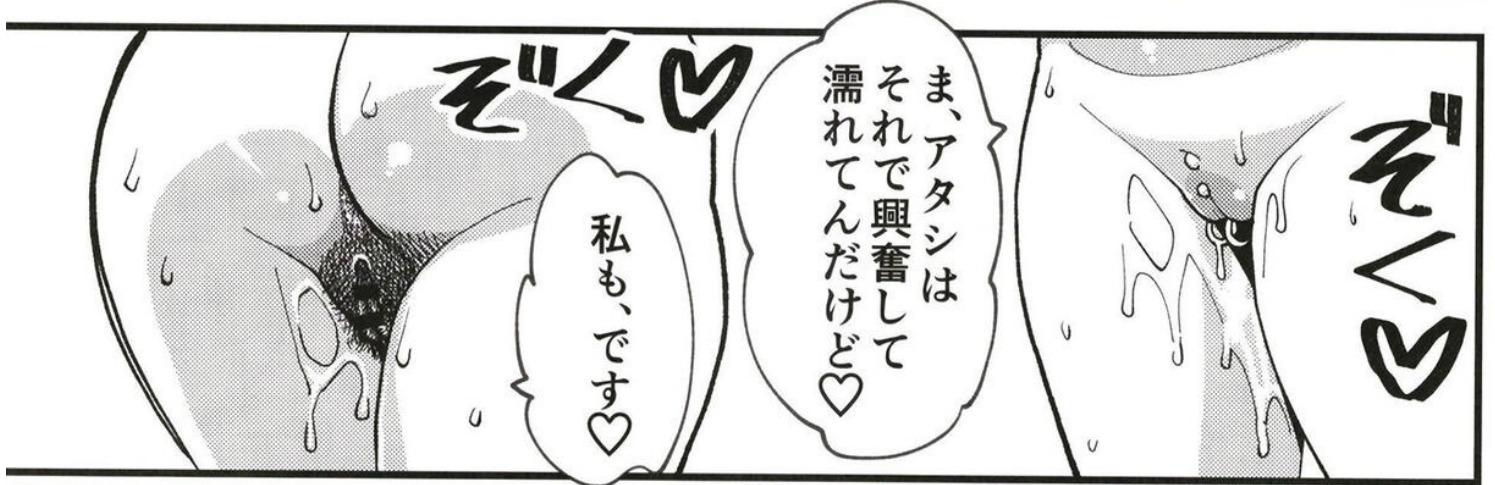 ぞくっ♡
ま、アタシは
それで興奮して
濡れてんだけど♡
ぞくっ♡
私も、です♡